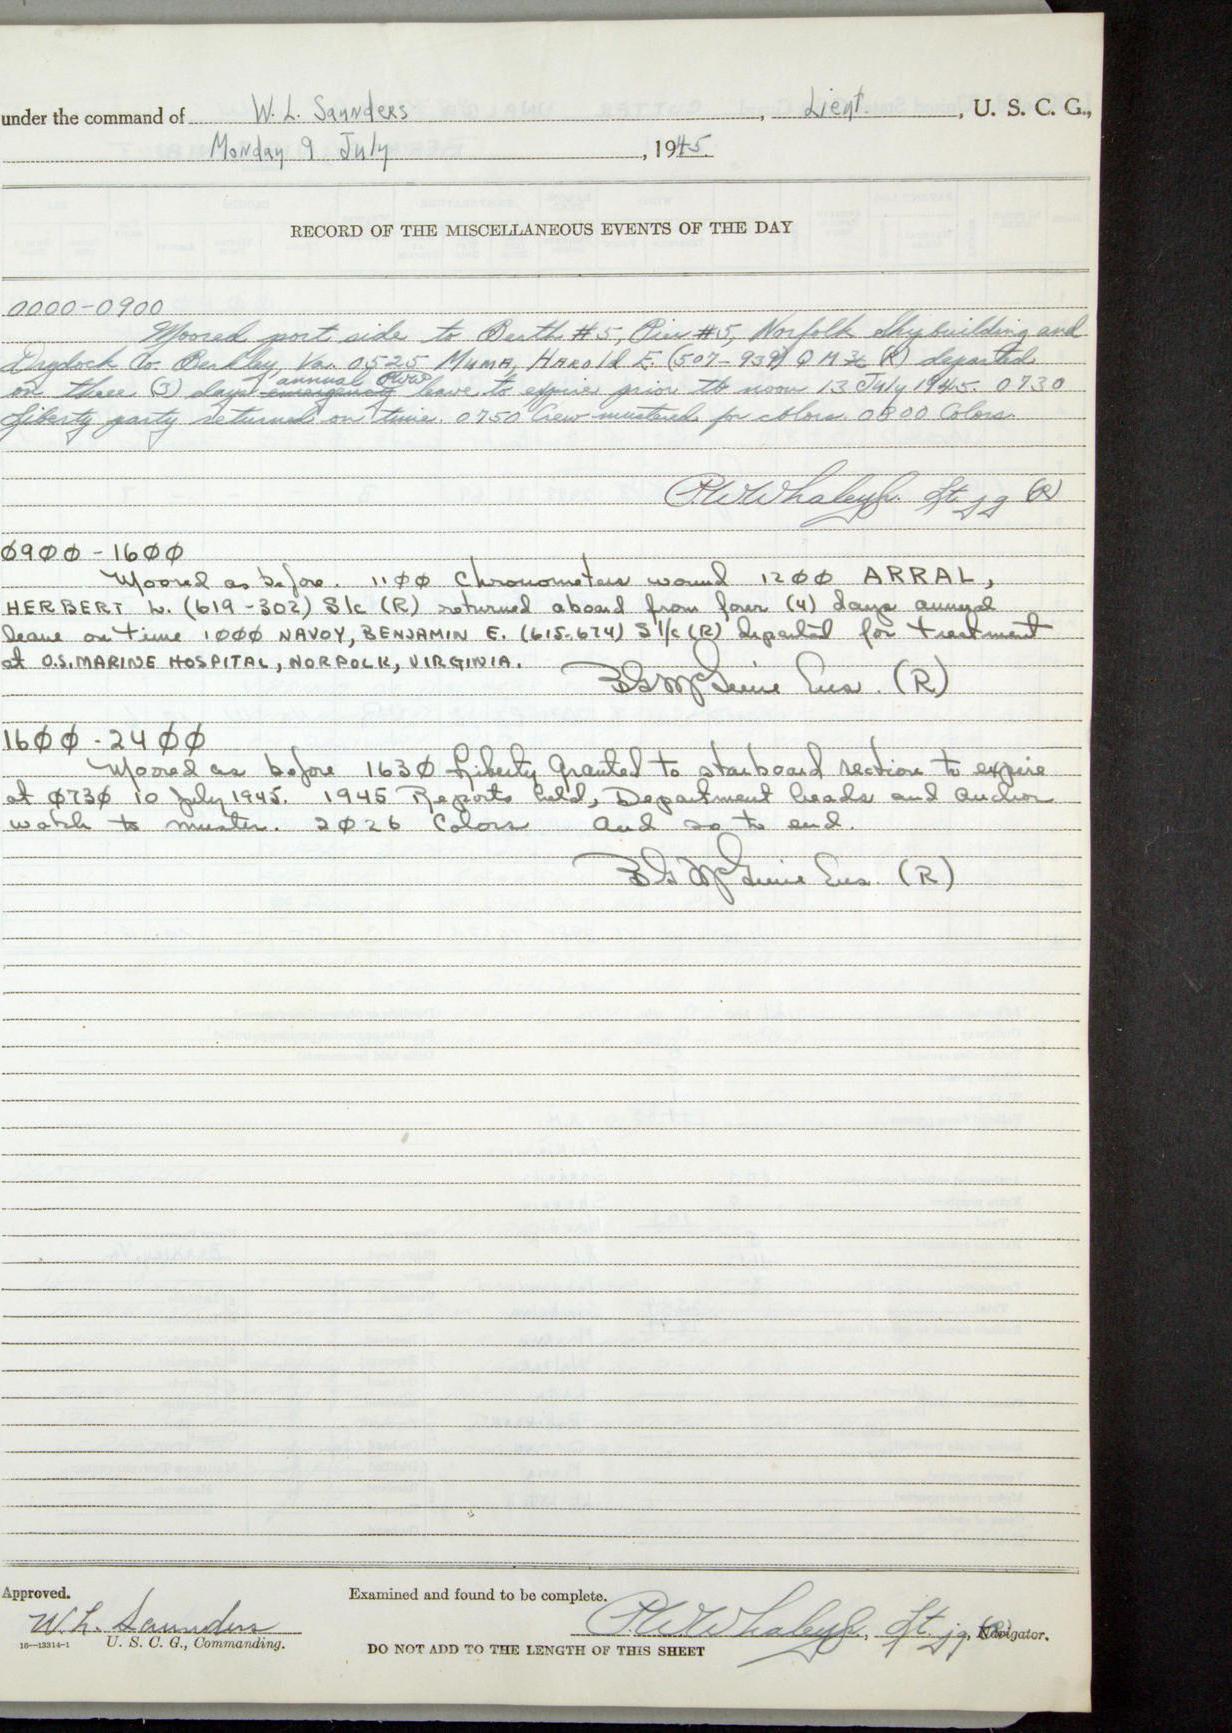 under the command of W. L. Saunders, Lieut., U. S. C. G.,
Monday 9 July, 1945.
RECORD OF THE MISCELLANEOUS EVENTS OF THE DAY
0000-0900
Moored port side to Berth #5, Pier #5, Norfolk Shipbuilding and
Drydock Co. Berkley, Va. 0525 MUMA, HAROLD E. (507-939) QM (R) departed
annual PWW
on three (3) days emergency leave to expire prior to noon 13 July 1945. 0730
Liberty party returned on time. 0750 Crew mustered for colors. 0800 Colors.
P.W. Whaley Jr. Lt. jg (R)
0900-1600
Moored as before. 1100 Chronometers wound 1200 ARRAL,
HERBERT W. (619-302) S1c (R) returned aboard from four (4) days annual
leave on time 1000 NAVOY, BENJAMIN E. (615-674) S1/c (R) departed for treatment
at U.S. MARINE HOSPITAL, NORFOLK, VIRGINIA.
Ens. (R)
1600-2400
Moored as before 1630 Liberty Granted to starboard section to expire
at 0730 10 July 1945. 1945 Reports held, Department heads and anchor
watch to muster. 2026 Colors and so to end.
Ens. (R)
Approved.
Examined and found to be complete.
W. L. Saunders
P.W. Whaley Jr., Lt. jg, (R) Navigator.
16-13314-1 U. S. C. G., Commanding.
DO NOT ADD TO THE LENGTH OF THIS SHEET